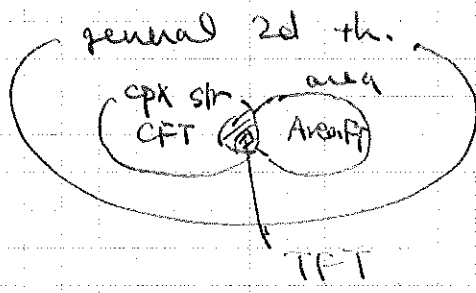 general 2d th.
cpx str area
CFT AreaFT
TFT